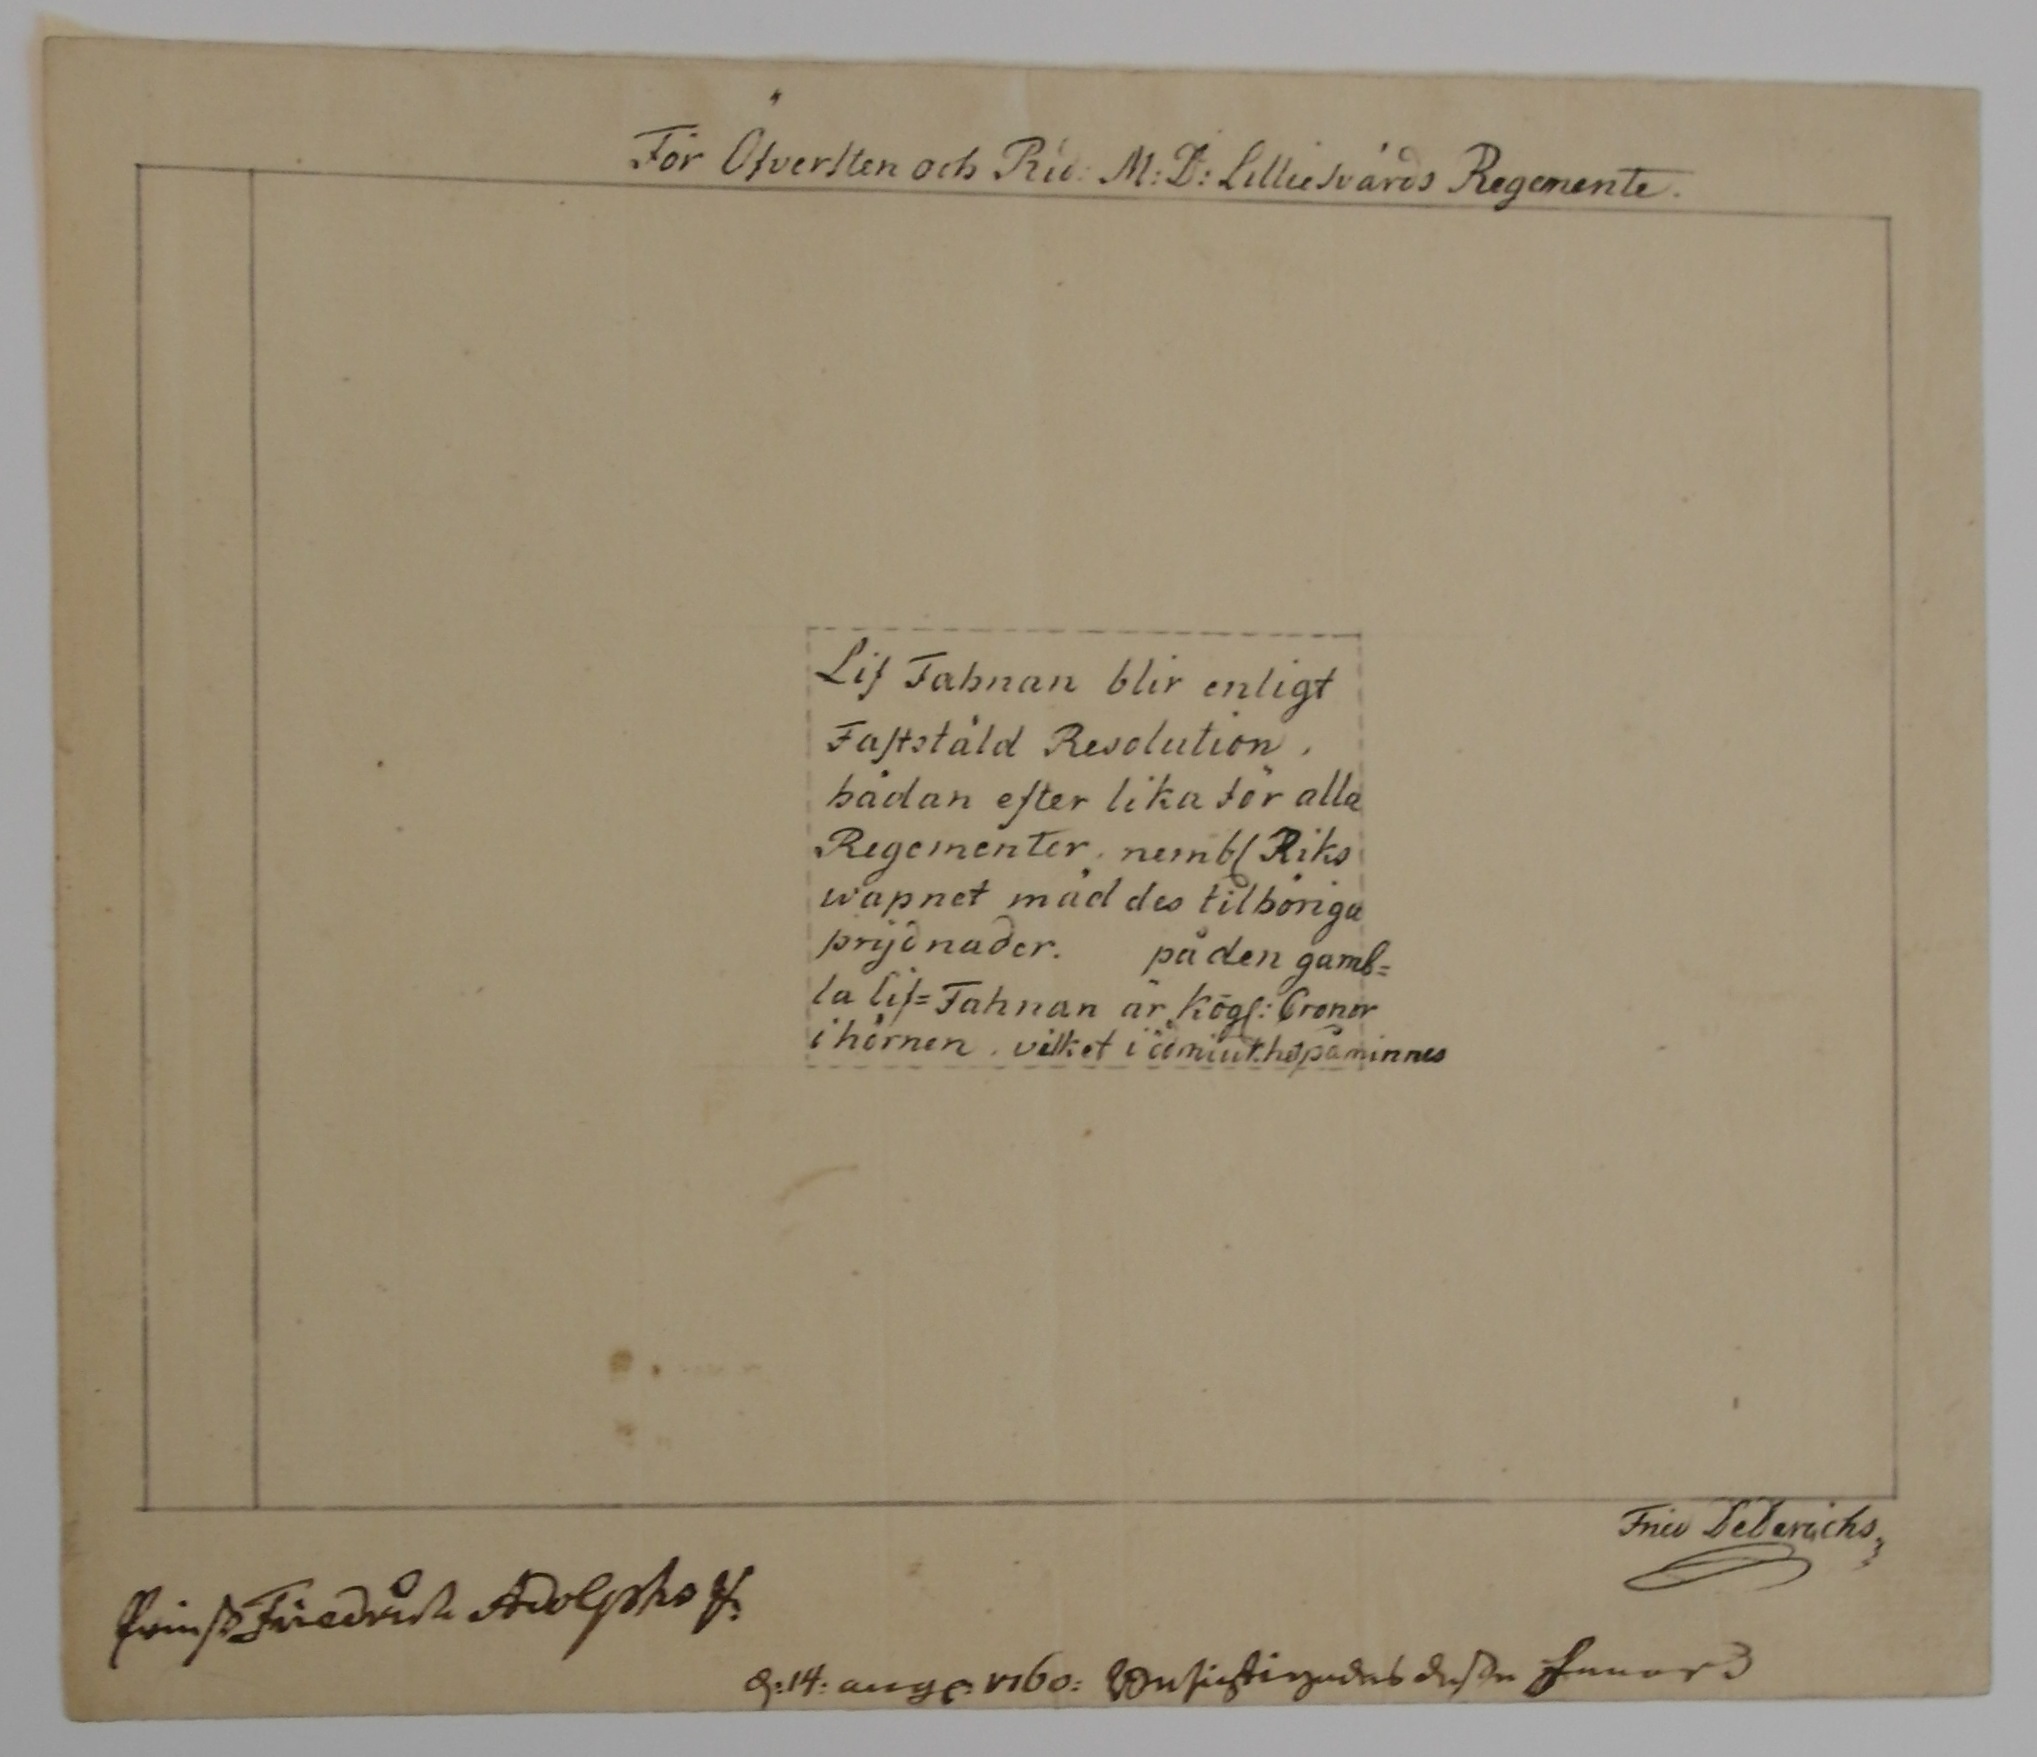 För Öfversten och Rid: M: D: Lilliesvärds Regemente.
Lif Fahnan blir enligt
Faststäld Resolution,
hädan efter lika för alla
Regementer, nembl Riks
wapnet mäd des tilhöriga
prijdnader. på den gamb=
la lif=Fahnan är Kögl: Cronor
i hörnen, vilket i påminnes
Fried Dederichs
Prins Friedrich Adolphs
d: 14: aug: 1760: Besichtigades desse fanor